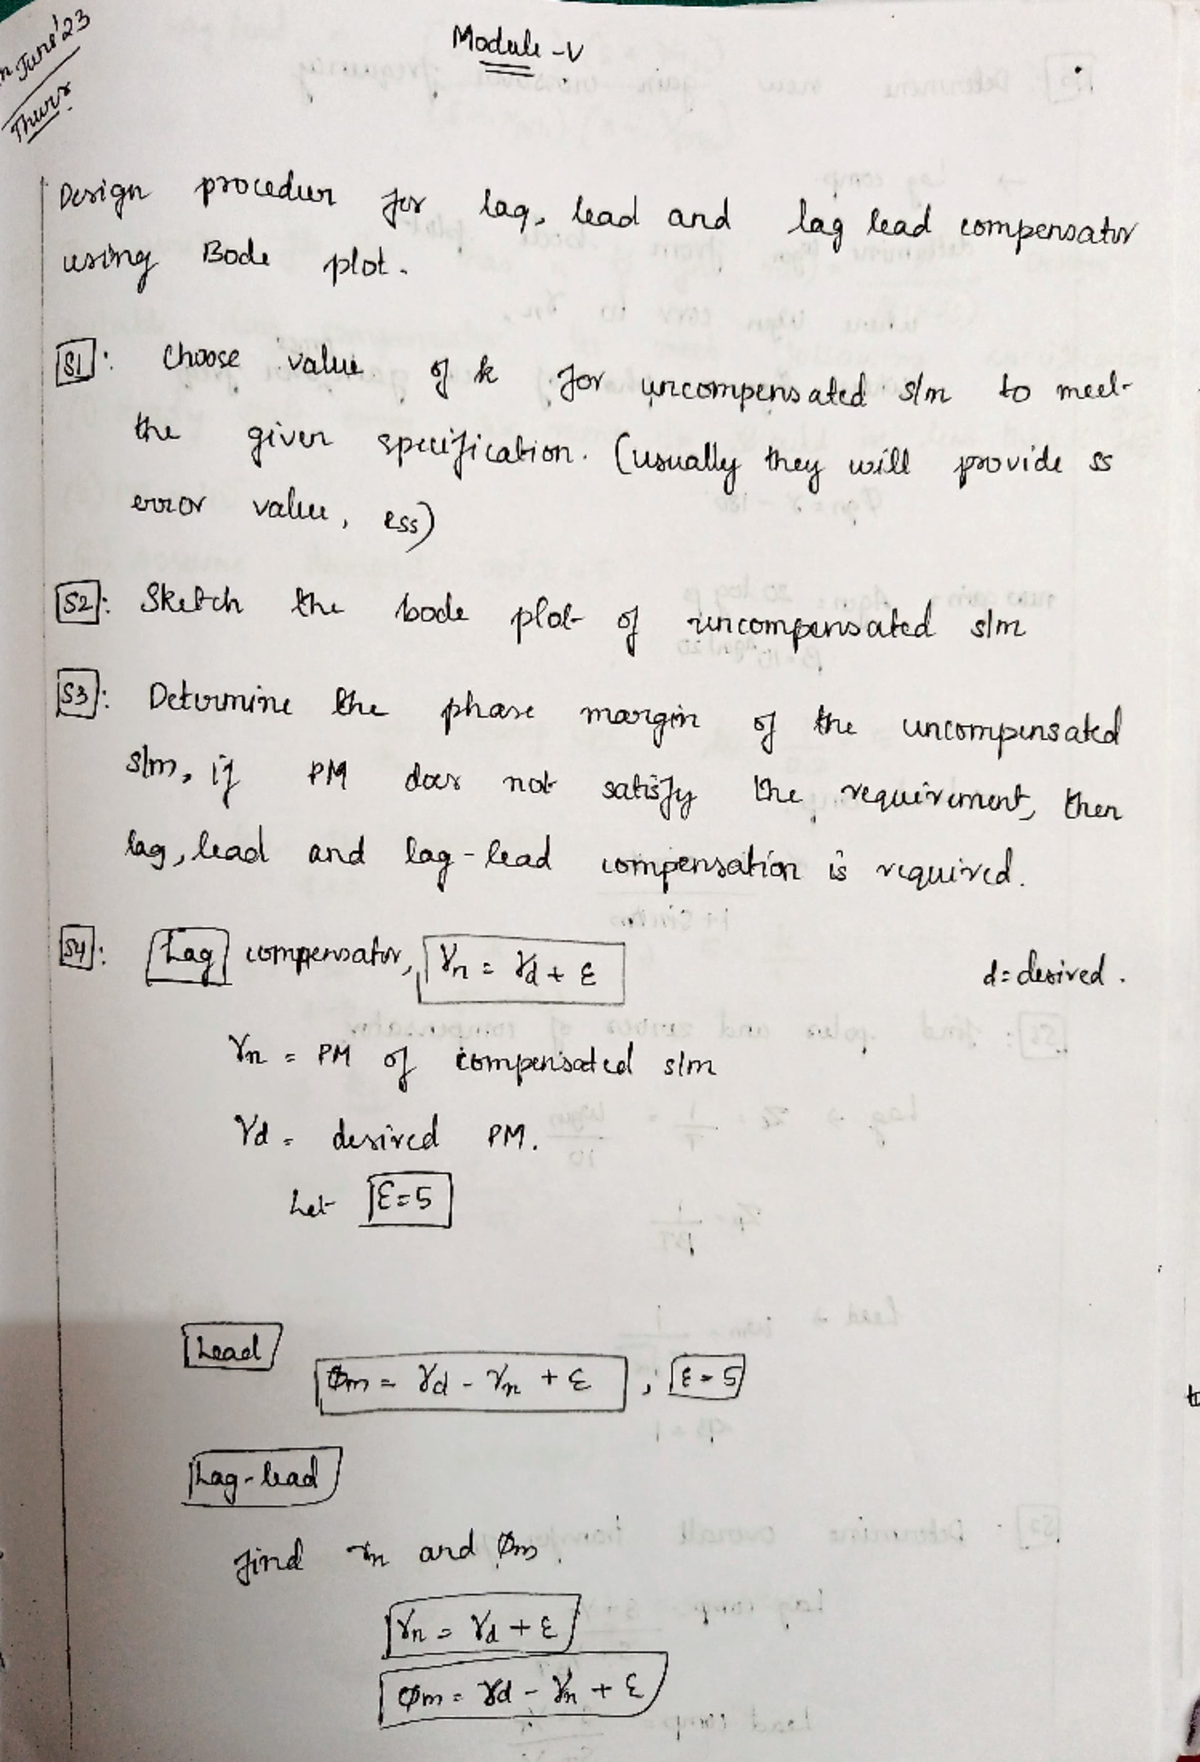 June'23
Thurs
Module - V
Design procedur for lag, lead and lag lead compensator
using Bode plot.
S1: Choose value of k for uncompensated s/m to meet
the given specification. (usually they will provide ss
error value, ess)
S2: Sketch the bode plot of uncompensated s/m
S3: Determine the phase margin of the uncompensated
s/m, if PM does not satisfy the requirement, then
lag, lead and lag-lead compensation is required.
S4: Lag compensator, γn = γd + ε d = desired.
γn = PM of compensated s/m
γd = desired PM.
Let ε = 5
Lead
Φm = γd - γn + ε , ε = 5
Lag-lead
find γn and Φm.
γn = γd + ε
Φm = γd - γn + ε